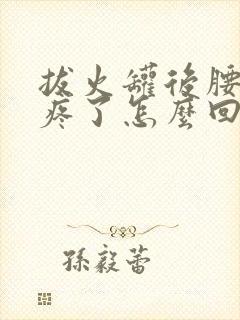 拔火罐後腰
疼了怎麼回
孫毅蕾